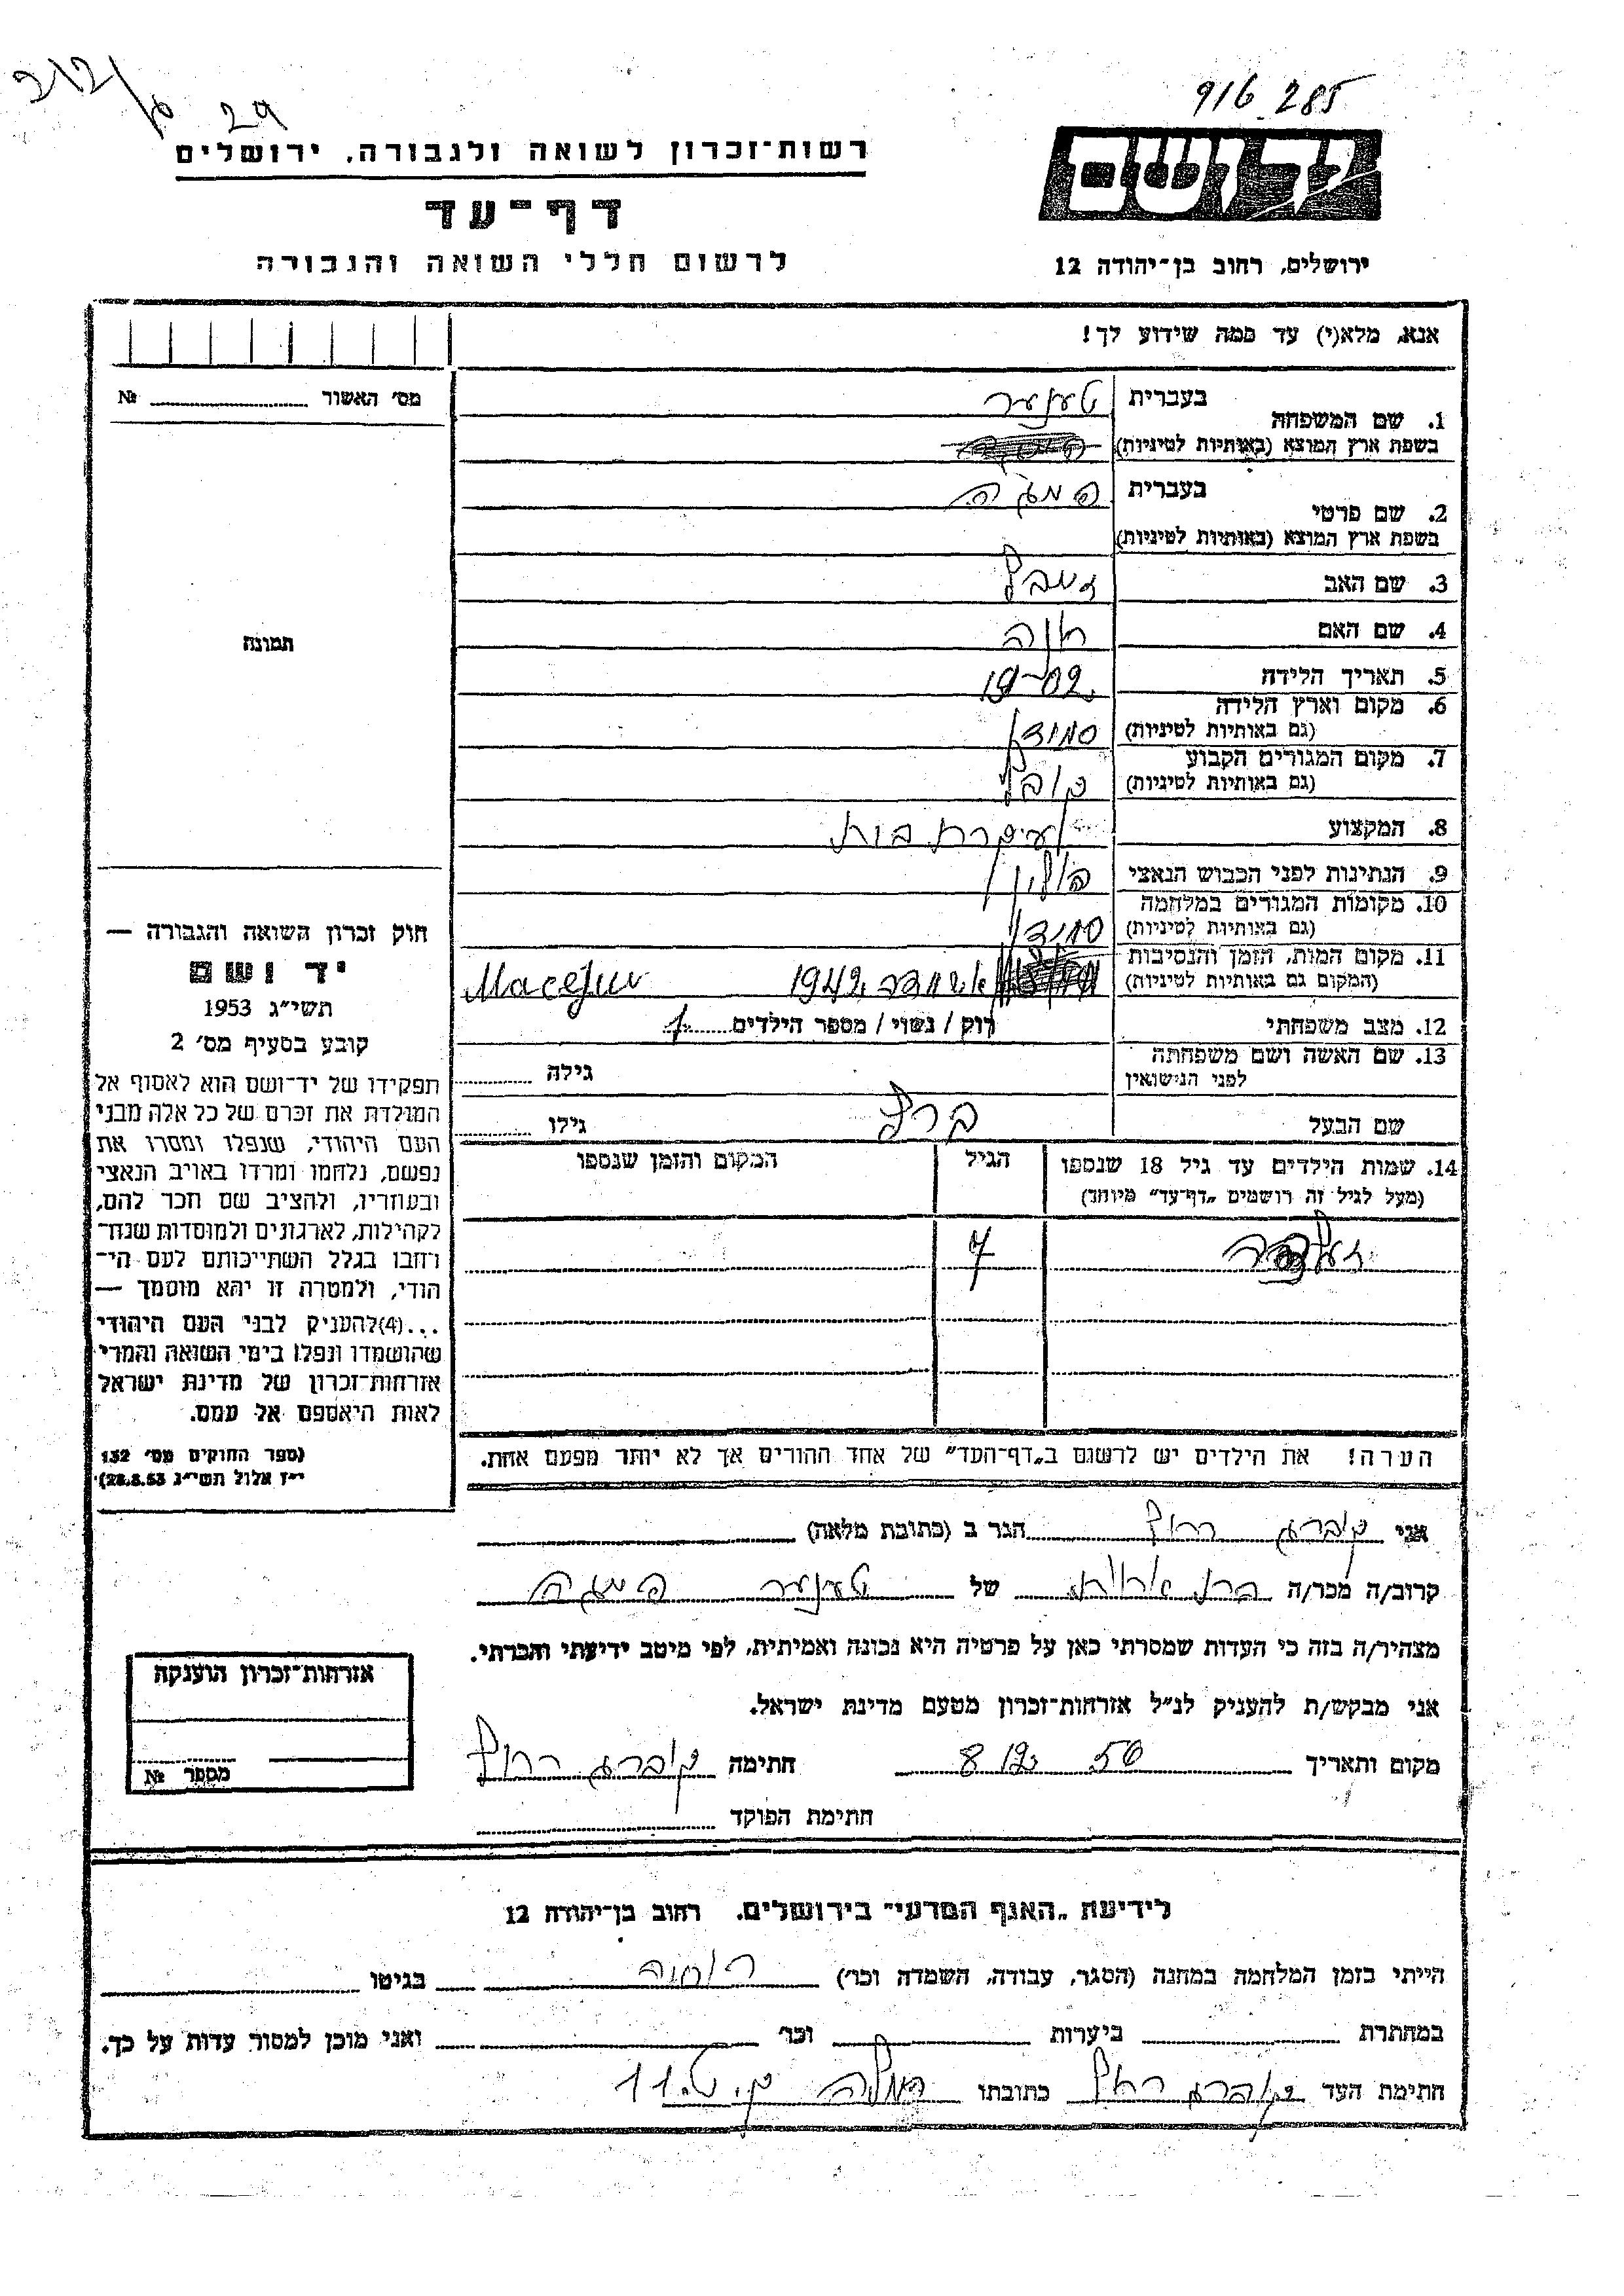 916285
29
יד ושם
רשות-זכרון לשואה ולגבורה, ירושלים
דף-עד
ירושלים, רחוב בן-יהודה 12
לרשום חללי השואה והגבורה
אנא, מלא(י) עד כמה שידוע לך!
מס' האשור № 
1. שם המשפחה בעברית טענער
בשפת ארץ המוצא (באותיות לטיניות)
2. שם פרטי בעברית
בשפת ארץ המוצא (באותיות לטיניות)
3. שם האב
4. שם האם חנה
5. תאריך הלידה 1902
6. מקום וארץ הלידה
(גם באותיות לטיניות)
7. מקום המגורים הקבוע
(גם באותיות לטיניות) קובל
8. המקצוע עקרת בית
9. הנתינות לפני הכבוש הנאצי פולין
10. מקומות המגורים במלחמה
(גם באותיות לטיניות)
11. מקום המות, הזמן והנסיבות
(המקום גם באותיות לטיניות) 1942 Macejuw
12. מצב משפחתי רוק / נשוי / מספר הילדים 1
13. שם האשה ושם משפחתה
לפני הנישואין גילה
שם הבעל ברל גילו
14. שמות הילדים עד גיל 18 שנספו הגיל המקום והזמן שנספו
(מעל לגיל זה רושמים „דף-עד" מיוחד)
7
הערה! את הילדים יש לרשום ב„דף-העד" של אחד ההורים אך לא יותר מפעם אחת.
תמונה
חוק זכרון השואה והגבורה —
יד ושם
תשי"ג 1953
קובע בסעיף מס' 2
תפקידו של יד-ושם הוא לאסוף אל
המולדת את זכרם של כל אלה מבני
העם היהודי, שנפלו ומסרו את
נפשם, נלחמו ומרדו באויב הנאצי
ובעוזריו, ולהציב שם וזכר להם,
לקהילות, לארגונים ולמוסדות שנח-
רחבו בגלל השתייכותם לעם הי-
הודי, ולמטרה זו יהא מוסמך —
...(4)להעניק לבני העם היהודי
שהושמדו ונפלו בימי השואה והמרי
אזרחות-זכרון של מדינת ישראל
לאות היאספם אל עמם.
(ספר החוקים מס' 132
י"ז אלול תשי"ג 28.8.53)
אני רחל הגר ב (כתובת מלאה)
קרוב/ה מכר/ה של טענער
מצהיר/ה בזה כי העדות שמסרתי כאן על פרטיה היא נכונה ואמיתית, לפי מיטב ידיעתי והכרתי.
אני מבקש/ת להעניק לנ"ל אזרחות-זכרון מטעם מדינת ישראל.
מקום ותאריך 8 12 56 חתימה רחל
חתימת הפוקד
אזרחות-זכרון הוענקה
מספר №
לידיעת „האגף המדעי" בירושלים, רחוב בן-יהודה 12
הייתי בזמן המלחמה במחנה (הסגר, עבודה, השמדה וכו') בגיטו
במחתרת ביערות וכו' ואני מוכן למסור עדות על כך.
חתימת העד רחל כתובתו רמלה ק.ט. 11